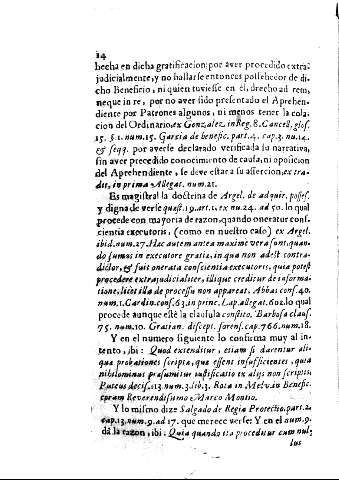 14
hecha en dicha gratificacion: por aver procedido extra-
judicialmente, y no hallarse entonces possehedor de di-
cho Beneficio, ni quien tuviesse en èl, drecho ad rem,
neque in re, por no aver sido presentado el Aprehen-
diente por Patrones algunos, ni menos tener la cola-
cion del Ordinario, ex Gonzalez, in Reg. 8. Cancell, glos.
15. §. 1. num. 15. Garcia de benefic. part. 4. cap. 3. nu. 14.
& seqq. por averse declarado verificada su narrativa,
sin aver precedido conocimento de causa, ni oposicion
del Aprehendiente, se deve estar a su assercion, ex tra-
dit, in prima Allegat. num. 21.
Es magistral la doctrina de Argel. de adquir. posses.
y digna de verse quæst. 19. art. 1. ex nu. 24. ad 50. lo qual
procede con mayoria de razon, quando oneratur cons-
cientia executoris, (como en nuestro caso) ex Argel.
ibid. num. 27. Hac autem antea maxime vera sunt, quan-
do sumus in executore gratiæ, in qua non adest contra-
dictor, & fuit onerata conscientia executoris, quia potest
procedere extrajudicialiter, illique creditur de informa-
tione, licet illa de processu non appareat. Abbas cons. 40.
num. 1. Cardin. cons. 63. in princ. Cap. allegat. 602. lo qual
procede aunque esté la clausula constito. Barbosa claus.
75. num. 10. Gratian. discept. forens. cap. 766. num. 18.
Y en el numero siguiente lo confirma muy al in-
tento, ibi: Quod extenditur, etiam si darentur ali-
quæ probationes scriptæ, quæ essent insufficientes, quia
nihilominus præsumitur justificatio ex alijs non scriptis;
Puteus decis. 13. num. 3. lib. 3. Rota in Metu. in Benefic.
coram Reverendissimo Marco Montio.
Y lo mismo dize Salgado de Regia Protectio. part. 2.
cap. 13. num. 9. ad 17. que merece verse: Y en el num. 9.
dà la razon, ibi: Quia quando ita proceditur cum nul-
lus